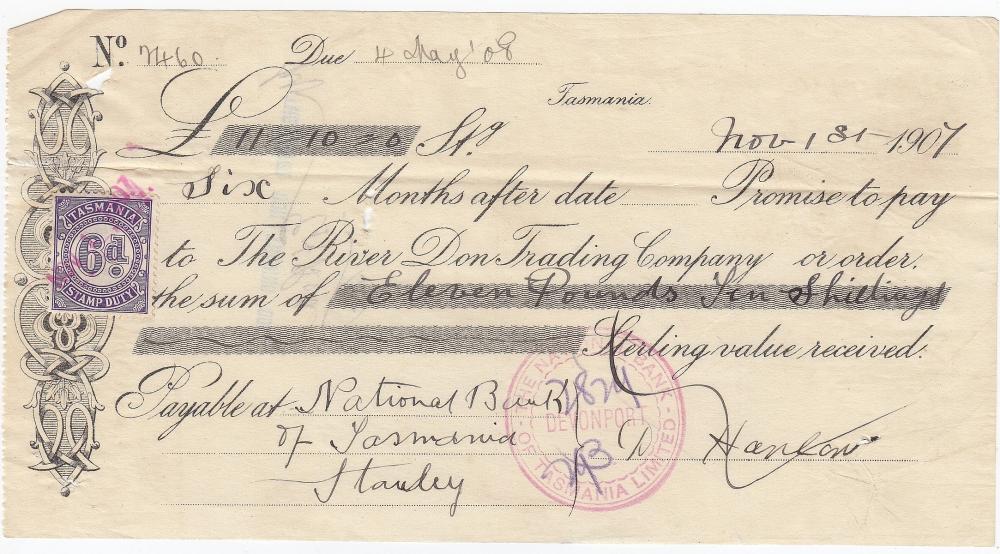 No. 7460. Due 4 May '08
Tasmania.
£ 11-10-0 Stg Nov 1st 1907
Six Months after date Promise to pay
to The River Don Trading Company or order.
the sum of Eleven Pounds Ten Shillings
Sterling value received.
Payable at National Bank
of Tasmania
Stanley
TASMANIA
6d.
STAMP DUTY
THE NATIONAL BANK
OF TASMANIA LIMITED
DEVONPORT